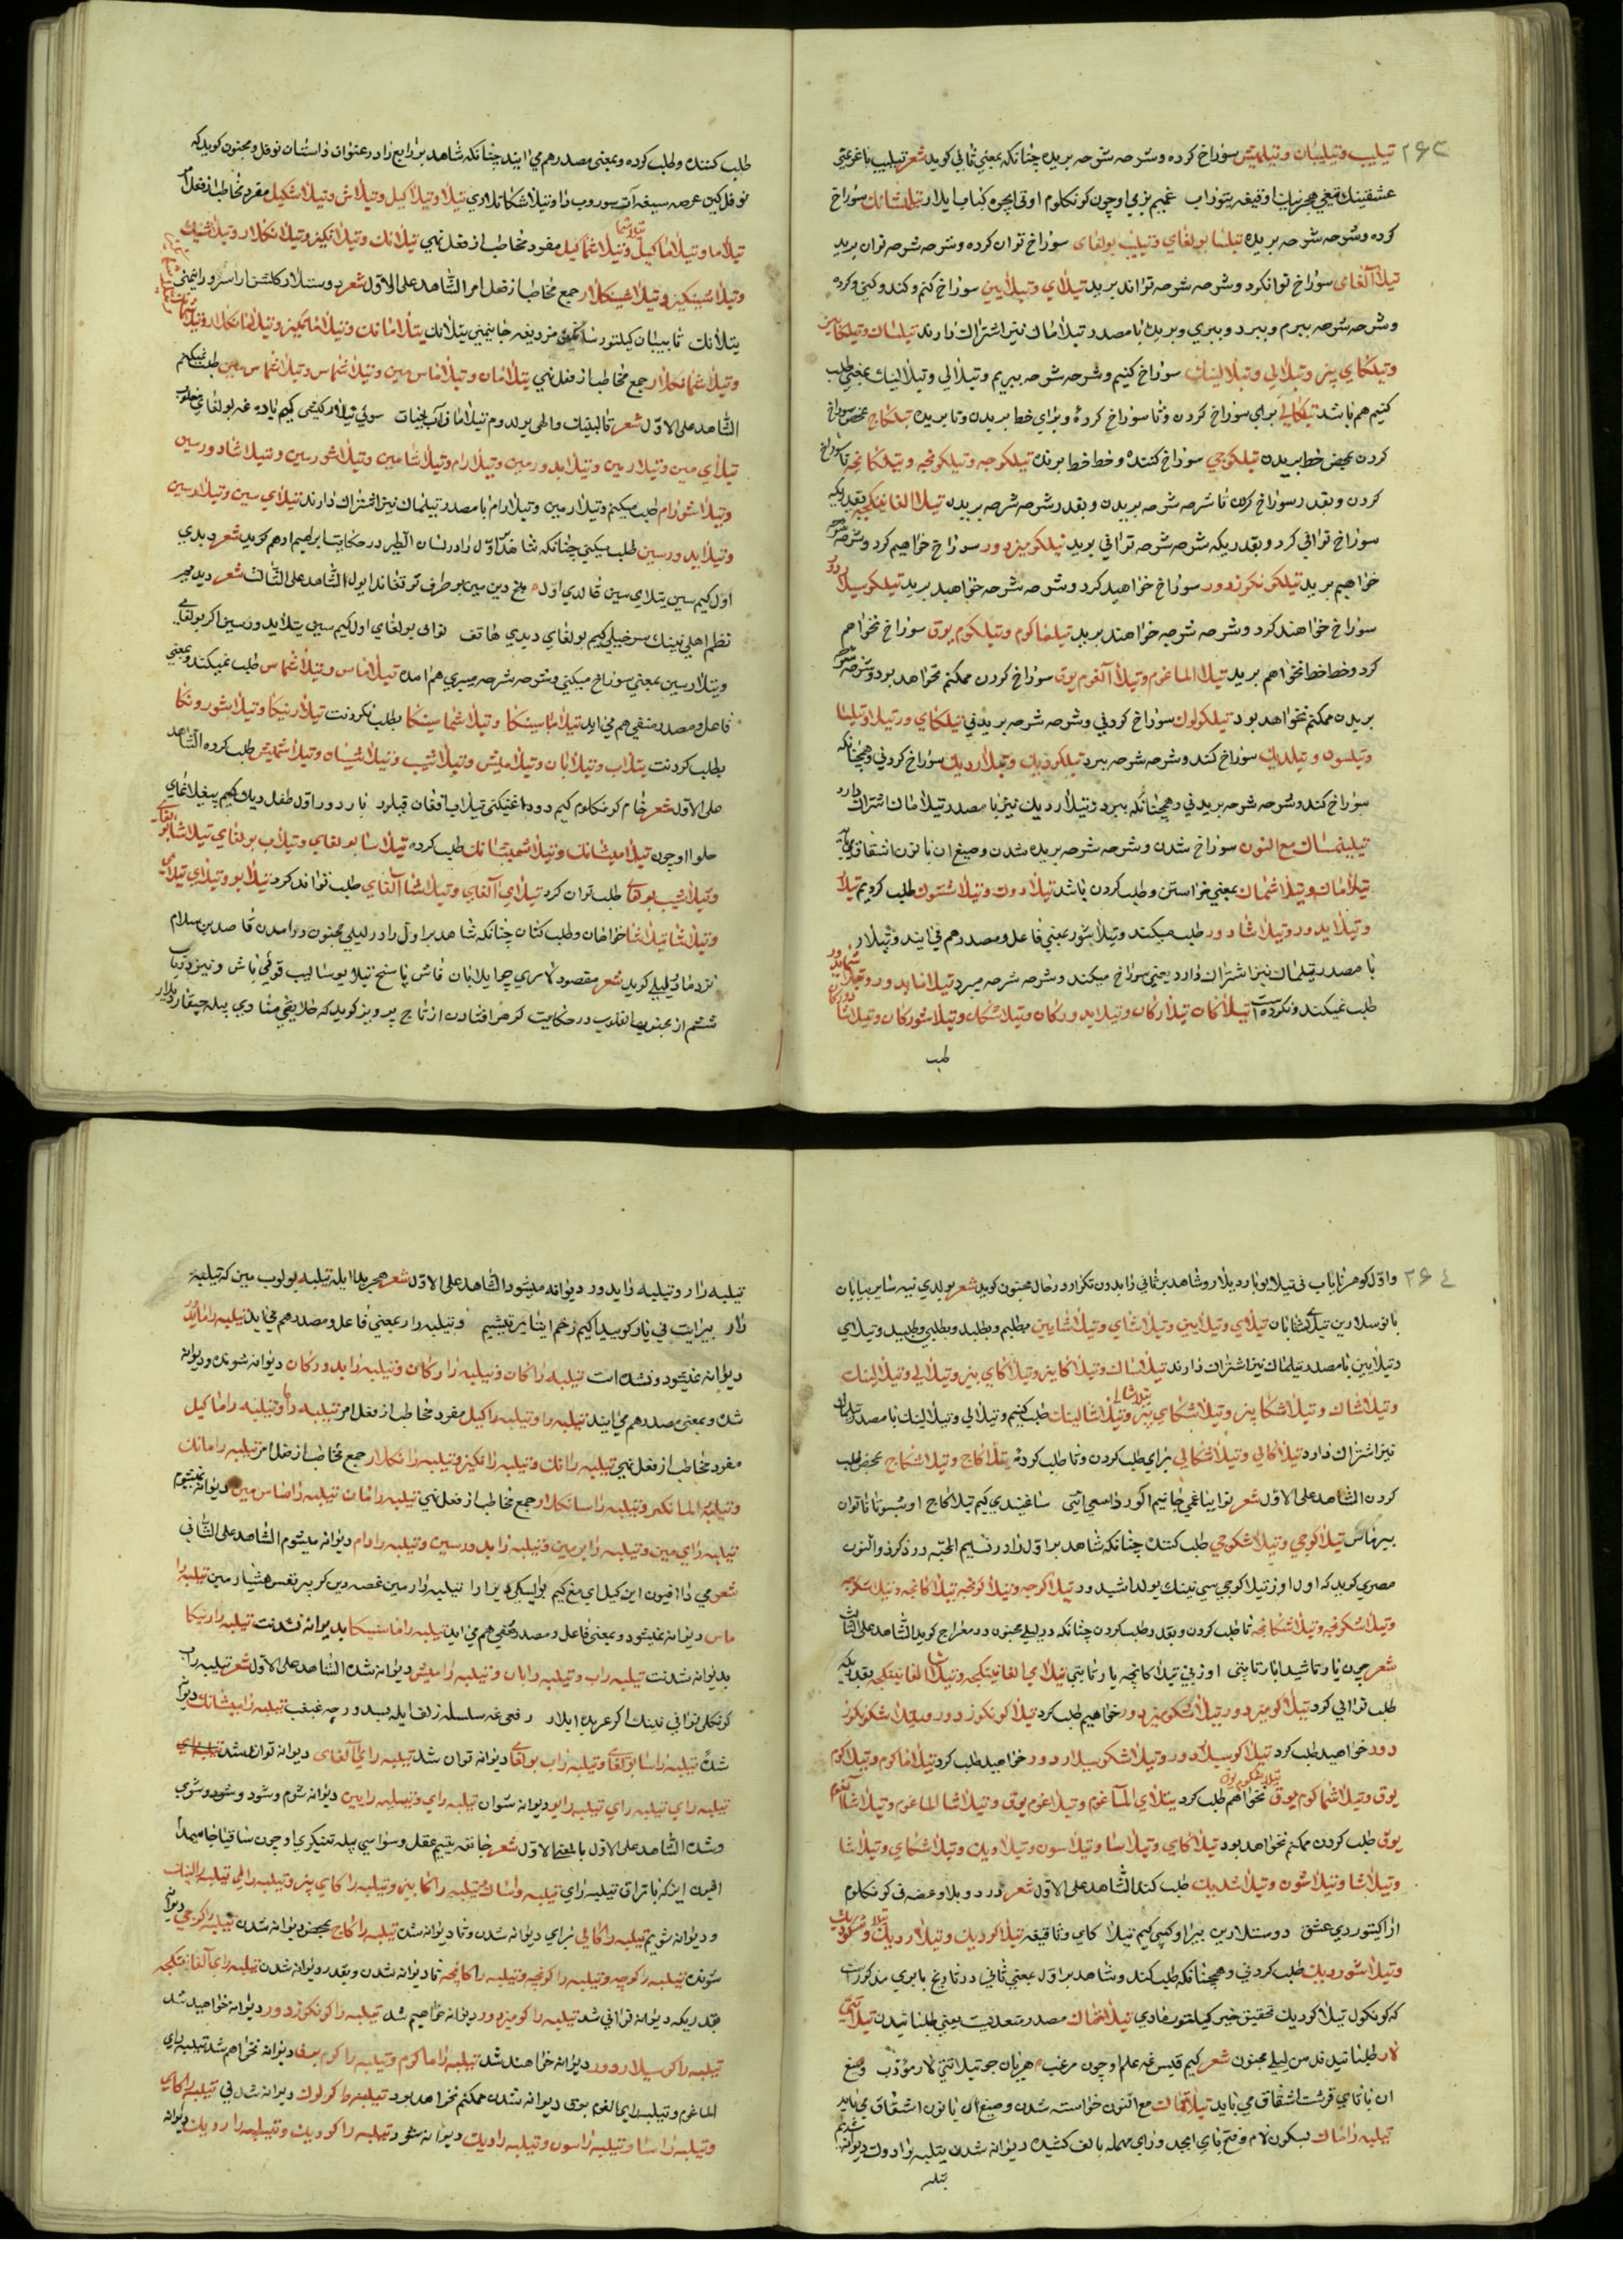 ۲۶۳
تیلیب وتیلیبان وتیلمیش سوراخ کرده وشرحه شرحه بریده چنانکه بمعنی ثانی کوید شعر تیلیب باغریمنی
عشقینك تیغی هجرینك اوقیغه یتوراب غمیم بزمی اوچون کونکلوم اوتی ایچره کباب ایلار تیلمیشانك سوراخ
کرده وشرحه شرحه بریده تیلسا بولغای وتیلیب بولغای سوراخ توان کرده وشرحه شرحه توان برید
تیلا آلغای سوراخ تواند کرد وشرحه شرحه تواند برید تیلای وتیلایین سوراخ کنم وکند وکنی وکرده
وشرحه شرحه ببرم وببرد وببری وبریده با مصدر تیلاماك نیز اشتراك دارند تیلساك وتیلکابیز
وتیلکای بیز وتیلالی وتیلالینك سوراخ کنیم وشرحه شرحه ببریم وتیلالی وتیلالینك بمعنی طلب
کنیم هم باشد تیلکالی برای سوراخ کردن وتا سوراخ کرده وبرای خط بریدن وتا بریده تیلکاج بمحض سوراخ
کردن بمحض خط بریدن تیلکوجی سوراخ کننده وخط خط برنده تیلکوجه وتیلکونچه وتیلکانچه تا سوراخ
کردن وبقدر سوراخ کردن تا شرحه شرحه بریدن وبقدر شرحه شرحه بریدن تیلا الغانینکچه بقدریکه
سوراخ توانی کرد وبقدریکه شرحه شرحه توانی برید تیلکومیز دور سوراخ خواهیم کرد وشرحه شرحه
خواهیم برید تیلکونکوز دور سوراخ خواهید کرد وشرحه شرحه خواهید برید تیلکوسیلار دور
سوراخ خواهند کرد وشرحه شرحه خواهند برید تیلماکوم وتیلکوم یوق سوراخ نخواهم
کرد وخط خط نخواهم برید تیلا الماغوم وتیلا آلغوم یوق سوراخ کردن ممکنم نخواهد بود وشرحه شرحه
بریدن ممکنم نخواهد بود تیلکولوك سوراخ کردنی وشرحه شرحه بریدنی تیلکای ور تیلار وتیلسا
وتیلسون وتیلدیك سوراخ کند وشرحه شرحه ببرد تیلکودیك وتیلاردیك سوراخ کردنی وهمچنانکه
سوراخ کند وشرحه شرحه بریدنی وهمچنانکه ببرد وتیلاردیك نیز با مصدر تیلاماك اشتراك دارد
تیلینماك مع النون سوراخ شدن وشرحه شرحه بریده شدن وصیغ ان با نون اشتقاق می یابد
تیلاماك وتیلاشماك بمعنی خواستن وطلب کردن باشد تیلادوك وتیلاشتوك طلب کردیم تیلار
وتیلایدور وتیلاشادور طلب میکند وتیلاشور بمعنی فاعل ومصدر هم می ایند وتیلار
با مصدر تیلماك نیز اشتراك دارد یعنی سوراخ میکند وشرحه شرحه میبرد تیلامایدور وتیلاشمایدور
طلب نمیکند ونکرده است تیلاکان تیلارکان وتیلایدورکان وتیلاشکان وتیلاشورکان وتیلاشادورکان
طلب
طلب کننده وطلب کرده وبمعنی مصدر هم می ایند چنانکه شاهد برابع زاد در عنوان داستان نوفل ومجنون کوید که
نوفل کین عرصه سیغه آت سوروب دا وتیلاشکاتلاری تیلا وتیلاکیل وتیلاش وتیلاشکیل مفرد مخاطب از فعل امر
تیلاما وتیلاماکیل وتیلاشماکیل مفرد مخاطب از فعل نهی تیلانك وتیلانکیز وتیلانکلار وتیلاشینك
وتیلاشینکیز وتیلاشینکلار جمع مخاطب از فعل امر الشاهد علی الاول شعر دوستلار کلشن ارا سرو روانیمنی
تیلانك تا بیبان کیلتورسا کیز مزدیغه جانیمنی تیلانك تیلامانك وتیلامانکیز وتیلامانکلار وتیلاشمانك
وتیلاشمانکلار جمع مخاطب از فعل نهی تیلامان وتیلاماس مین وتیلاشماس وتیلاشماس مین طلب نمیکنم
الشاهد علی الاول شعر قالبنینك والهی بولدوم تیلامان آب حیات سوئی تیلار کیشی کیم باده غه بولغای مغلوب
تیلای مین وتیلارمین وتیلایدورمین وتیلارام وتیلاشامین وتیلاشورمین وتیلاشادورمین
وتیلاشورام طلب میکنم وتیلارمین وتیلارام با مصدر تیلماك نیز اشتراك دارند تیلای سین وتیلارسین
وتیلایدورسین طلب میکنی چنانکه شاهد اول را در لسان الطیر در حکایت ابراهیم ادهم کوید شعر دیدی
اول کیم سین تیلای سین قالدی اول بلخ دین سین بو طرف تورتقاندا یول الشاهد علی الثالث شعر دیدی پیر
نظم اهلی نینك سرخیلی کیم بولغای دیدی هاتف نوائی بولغای اول کیم سین تیلایدورسین اکر بولغای
وتیلارسین بمعنی سوراخ میکنی وشرحه شرحه میبری هم امده تیلاماس وتیلاشماس طلب نمیکند وبمعنی
فاعل ومصدر منفی هم می اید تیلاماسینکا وتیلاشماسینکا بطلب نکردنت تیلارنیکا وتیلاشورونکا
بطلب کردنت تیلاب وتیلابان وتیلامیش وتیلاشیب وتیلاشیبان وتیلاشمیش طلب کرده الشاهد
علی الاول شعر خام کونکلوم کیم دوداغینکنی تیلاب افغان قیلور باردور اول طفل دیك کیم ییغلاغای
حلوا اوچون تیلامیشانك وتیلاشمیشانك طلب کرده تیلاسا بولغای وتیلاب بولغای تیلاشا بولغای
وتیلاشیب بولغای طلب توان کرد تیلای آلغای وتیلاشا آلغای طلب تواند کرد تیلابو وتیلای تیلای
وتیلاشا تیلاشا خواهان وطلب کنان چنانکه شاهد بر اول را در لیلی مجنون در امدن قاصد بن سلام
نزد مادر لیلی کوید شعر مقصود لاری چو ایلابان فاش پاسخ تیلابو سالیب قویی باش ونیز در باب
ششم از محبوب القلوب در حکایت کوهر افتادن از تاج پرویز کوید که خلایق منادی بیله چیقاردیلار
۲۶٤
واول کوهر نایاب نی تیلابو باردیلار وشاهد بر ثانی را بدون تکرار در حال مجنون کوید شعر بولدی نیه سایر بیابان
یانو سلارین تیلای شتابان تیلای وتیلایین وتیلاشای وتیلاشایین بطلبم وبطلبد وبطلبی وطلبید وتیلای
وتیلایین با مصدر تیلماك نیز اشتراك دارند تیلاساك وتیلاکابیز وتیلاکای بیز وتیلالی وتیلالینك
وتیلاشساك وتیلاشکابیز وتیلاشکای بیز وتیلاشالی وتیلاشالینك طلب کنیم وتیلالی وتیلالینك با مصدر تیلماك
نیز اشتراك دارد تیلاکالی وتیلاشکالی برای طلب کردن وتا طلب کرده تیلاکاج وتیلاشکاج بمحض طلب
کردن الشاهد علی الاول شعر نوا یباغی جانیم اکوردا سمعی ائیتی ساغیندی کیم تیلاکاج اوشبو ناتوان
بیرماس تیلاکوجی وتیلاشکوجی طلب کننده چنانکه شاهد بر اول را در نسایم المحبه در ذکر ذوالنون
مصری کوید که اول اوز تیلاکوجی سی نینك یولداشیدور تیلاکوجه وتیلاکونچه تیلاکانچه وتیلاشکوجه
وتیلاشکونچه وتیلاشکانچه تا طلب کردن وبقدر طلب کردن چنانکه در لیلی مجنون در معراج کوید الشاهد علی الثالث
شعر چون یارتاشیدا یار تاپتی اوزنی تیلاکانچه یار تاپتی تیلای الغانینکچه وتیلاشا الغانینکچه بقدریکه
طلب توانی کرد تیلاکومیز دور تیلاشکومیز دور خواهیم طلب کرد تیلاکونکوز دور وتیلاشکونکوز
دور خواهید طلب کرد تیلاکوسیلار دور وتیلاشکوسیلار دور خواهند طلب کرد تیلاماکوم وتیلاکوم
یوق وتیلاشماکوم یوق نخواهم طلب کرد تیلای آلماغوم وتیلاآلغوم یوق وتیلاشا الماغوم وتیلاشا آلغوم
یوق طلب کردن ممکنم نخواهد بود تیلاکای وتیلاسا وتیلاسون وتیلادیك وتیلاشکای وتیلاشا
وتیلاشسا وتیلاشسون وتیلاشدیك طلب کند الشاهد علی الاول شعر درد وبلا وغصه نی کونکلوم
ارا کیتوردی عشق دوستلارین بیراوکیی کیم تیلاکای وثاقیغه تیلاکودیك وتیلاردیك وتیلاشکودیك
وتیلاشوردیك طلب کردنی وهمچنانکه طلب کند وشاهد بر اول بمعنی ثانی در تاریخ بابری مذکور است
که کونکول تیلاکودیك تحقیق خبر کیلتورمادی تیلاتماك مصدر متعدیست یعنی طلبانیدن تیلاتتی
لار طلبانیدند من لیلی مجنون شعر کیم قیس غه علم اوچون مرغب هر یان جو تیلاتتی لار مؤدب وصیغ
ان با تای قرشت اشتقاق می یابد تیلانماك مع النون خواسته شدن وصیغ آن با نون اشتقاق می یابد
تیلبه راماك بسکون لام وفتح بای ابجد ورای مهمله بالف کشیده دیوانه شدن تیلبه رادوك دیوانه شدیم
تیلبه
تیلبه رار وتیلبه رایدور دیوانه میشود الشاهد علی الاول شعر هجر بیلا ایله تیلبه بولوب مین که تیلبه
رار بیرایت نی یار کوییدا کیم زخم ایتار تیشیم وتیلبه رار بمعنی فاعل ومصدر هم می اید تیلبه رامایدور
دیوانه نمیشود ونشده است تیلبه راکان وتیلبه رارکان وتیلبه رایدورکان دیوانه شونده ودیوانه
شده وبمعنی مصدر هم می ایند تیلبه را وتیلبه راکیل مفرد مخاطب از فعل امر تیلبه راما وتیلبه راماکیل
مفرد مخاطب از فعل نهی تیلبه رانك وتیلبه رانکیز وتیلبه رانکلار جمع مخاطب از فعل امر تیلبه رامانك
وتیلبه رامانکیز وتیلبه رامانکلار جمع مخاطب از فعل نهی تیلبه رامان تیلبه راماس مین دیوانه نمیشوم
تیلبه رای مین وتیلبه رارمین وتیلبه رایدورمین وتیلبه رارام دیوانه میشوم الشاهد علی الثانی
شعر می دا افیون این کیل ای مغ کیم تیلبه رارمین غصه دین کر بیر نفس هشیار مین تیلبه را
ماس دیوانه نمیشود وبمعنی فاعل ومصدر منفی هم می اید تیلبه راماسینکا بدیوانه نشدنت تیلبه رارنیکا
بدیوانه شدنت تیلبه راب وتیلبه رابان وتیلبه رامیش دیوانه شده الشاهد علی الاول شعر تیلبه راب
کونکلی نوائی نینك اکر عربده ایلار رفعی غه سلسله زلف ایله بیدور چه غبغب تیلبه رامیشانك دیوانه
شده تیلبه راسا بولغای وتیلبه راب بولغای دیوانه توان شد تیلبه رای آلغای دیوانه تواند شد
تیلبه رای تیلبه رای تیلبه رابو دیوانه شوان تیلبه رای وتیلبه رایین دیوانه شوم وشود وشوی
وشده الشاهد علی الاول بالمعنی الاول شعر خانقه بتیم عقل وسواسی بیله تعتیکری اوچون ساقیا جامیمدا
افیون ایزکه باتراق تیلبه رای تیلبه راساك وتیلبه راکابیز وتیلبه راکای بیز وتیلبه رالی تیلبه رالینك
ودیوانه شویم تیلبه راکالی برای دیوانه شدن وتا دیوانه شدن تیلبه راکاج بمحض دیوانه شدن تیلبه راکوجی دیوانه
شونده تیلبه راکوچه وتیلبه راکونچه وتیلبه راکانچه تا دیوانه شدن وبقدر دیوانه شدن تیلبه رای آلغانینکچه
بقدریکه دیوانه توانی شد تیلبه راکومیز دور دیوانه خواهیم شد تیلبه راکونکوز دور دیوانه خواهید شد
تیلبه راکوسیلار دور دیوانه خواهند شد تیلبه راماکوم وتیلبه راکوم یوق دیوانه نخواهم شد تیلبه رای
الماغوم وتیلبه رای الغوم یوق دیوانه شدن ممکنم نخواهد بود تیلبه راکولوك دیوانه شدنی تیلبه راکای
وتیلبه راسا وتیلبه راسون وتیلبه رادیك دیوانه شود تیلبه راکودیك وتیلبه راردیك دیوانه